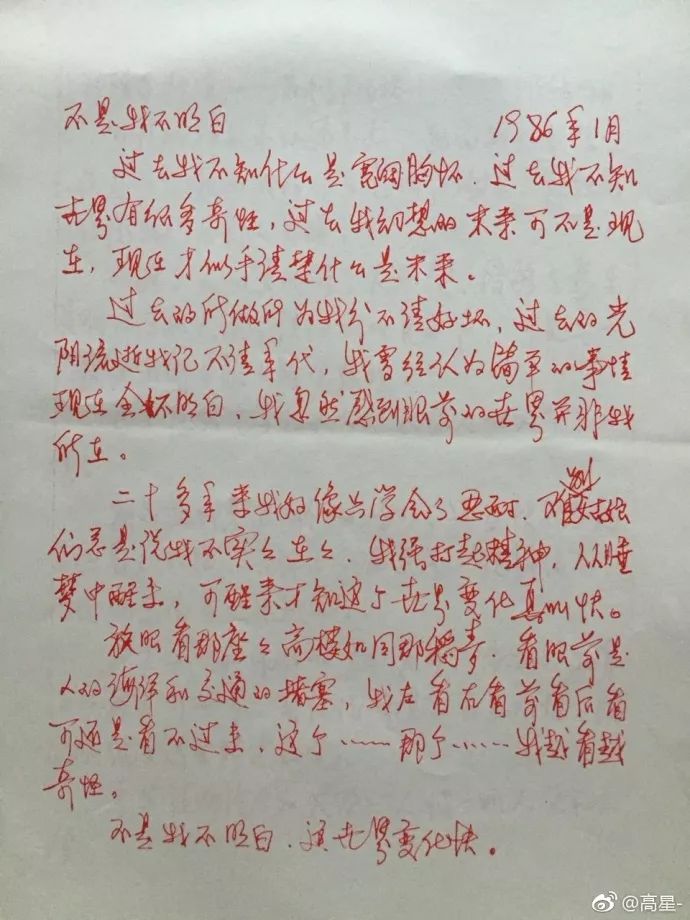 不是我不明白 1986年1月
过去我不知什么是宽阔胸怀．过去我不知
世界有很多奇怪，过去我幻想的未来可不是现
在，现在才似乎清楚什么是未来。
过去的所做所为我分不清好坏，过去的光
阴流逝我记不清年代，我曾经认为简单的事情
现在全不明白，我忽然感到眼前的世界并非我
所在。
二十多年来我好像只学会了忍耐．姑娘
们总是说我不实々在々．我强打起精神，从睡
梦中醒来，可醒来才知这个世界变化真叫快。
放眼看那座々高楼如同那稻麦．看眼前是
人的海洋和交通的堵塞，我左看右看前看后看
可还是看不过来，这个……那个……我越看越
奇怪。
不是我不明白．这世界变化快。
@高星-